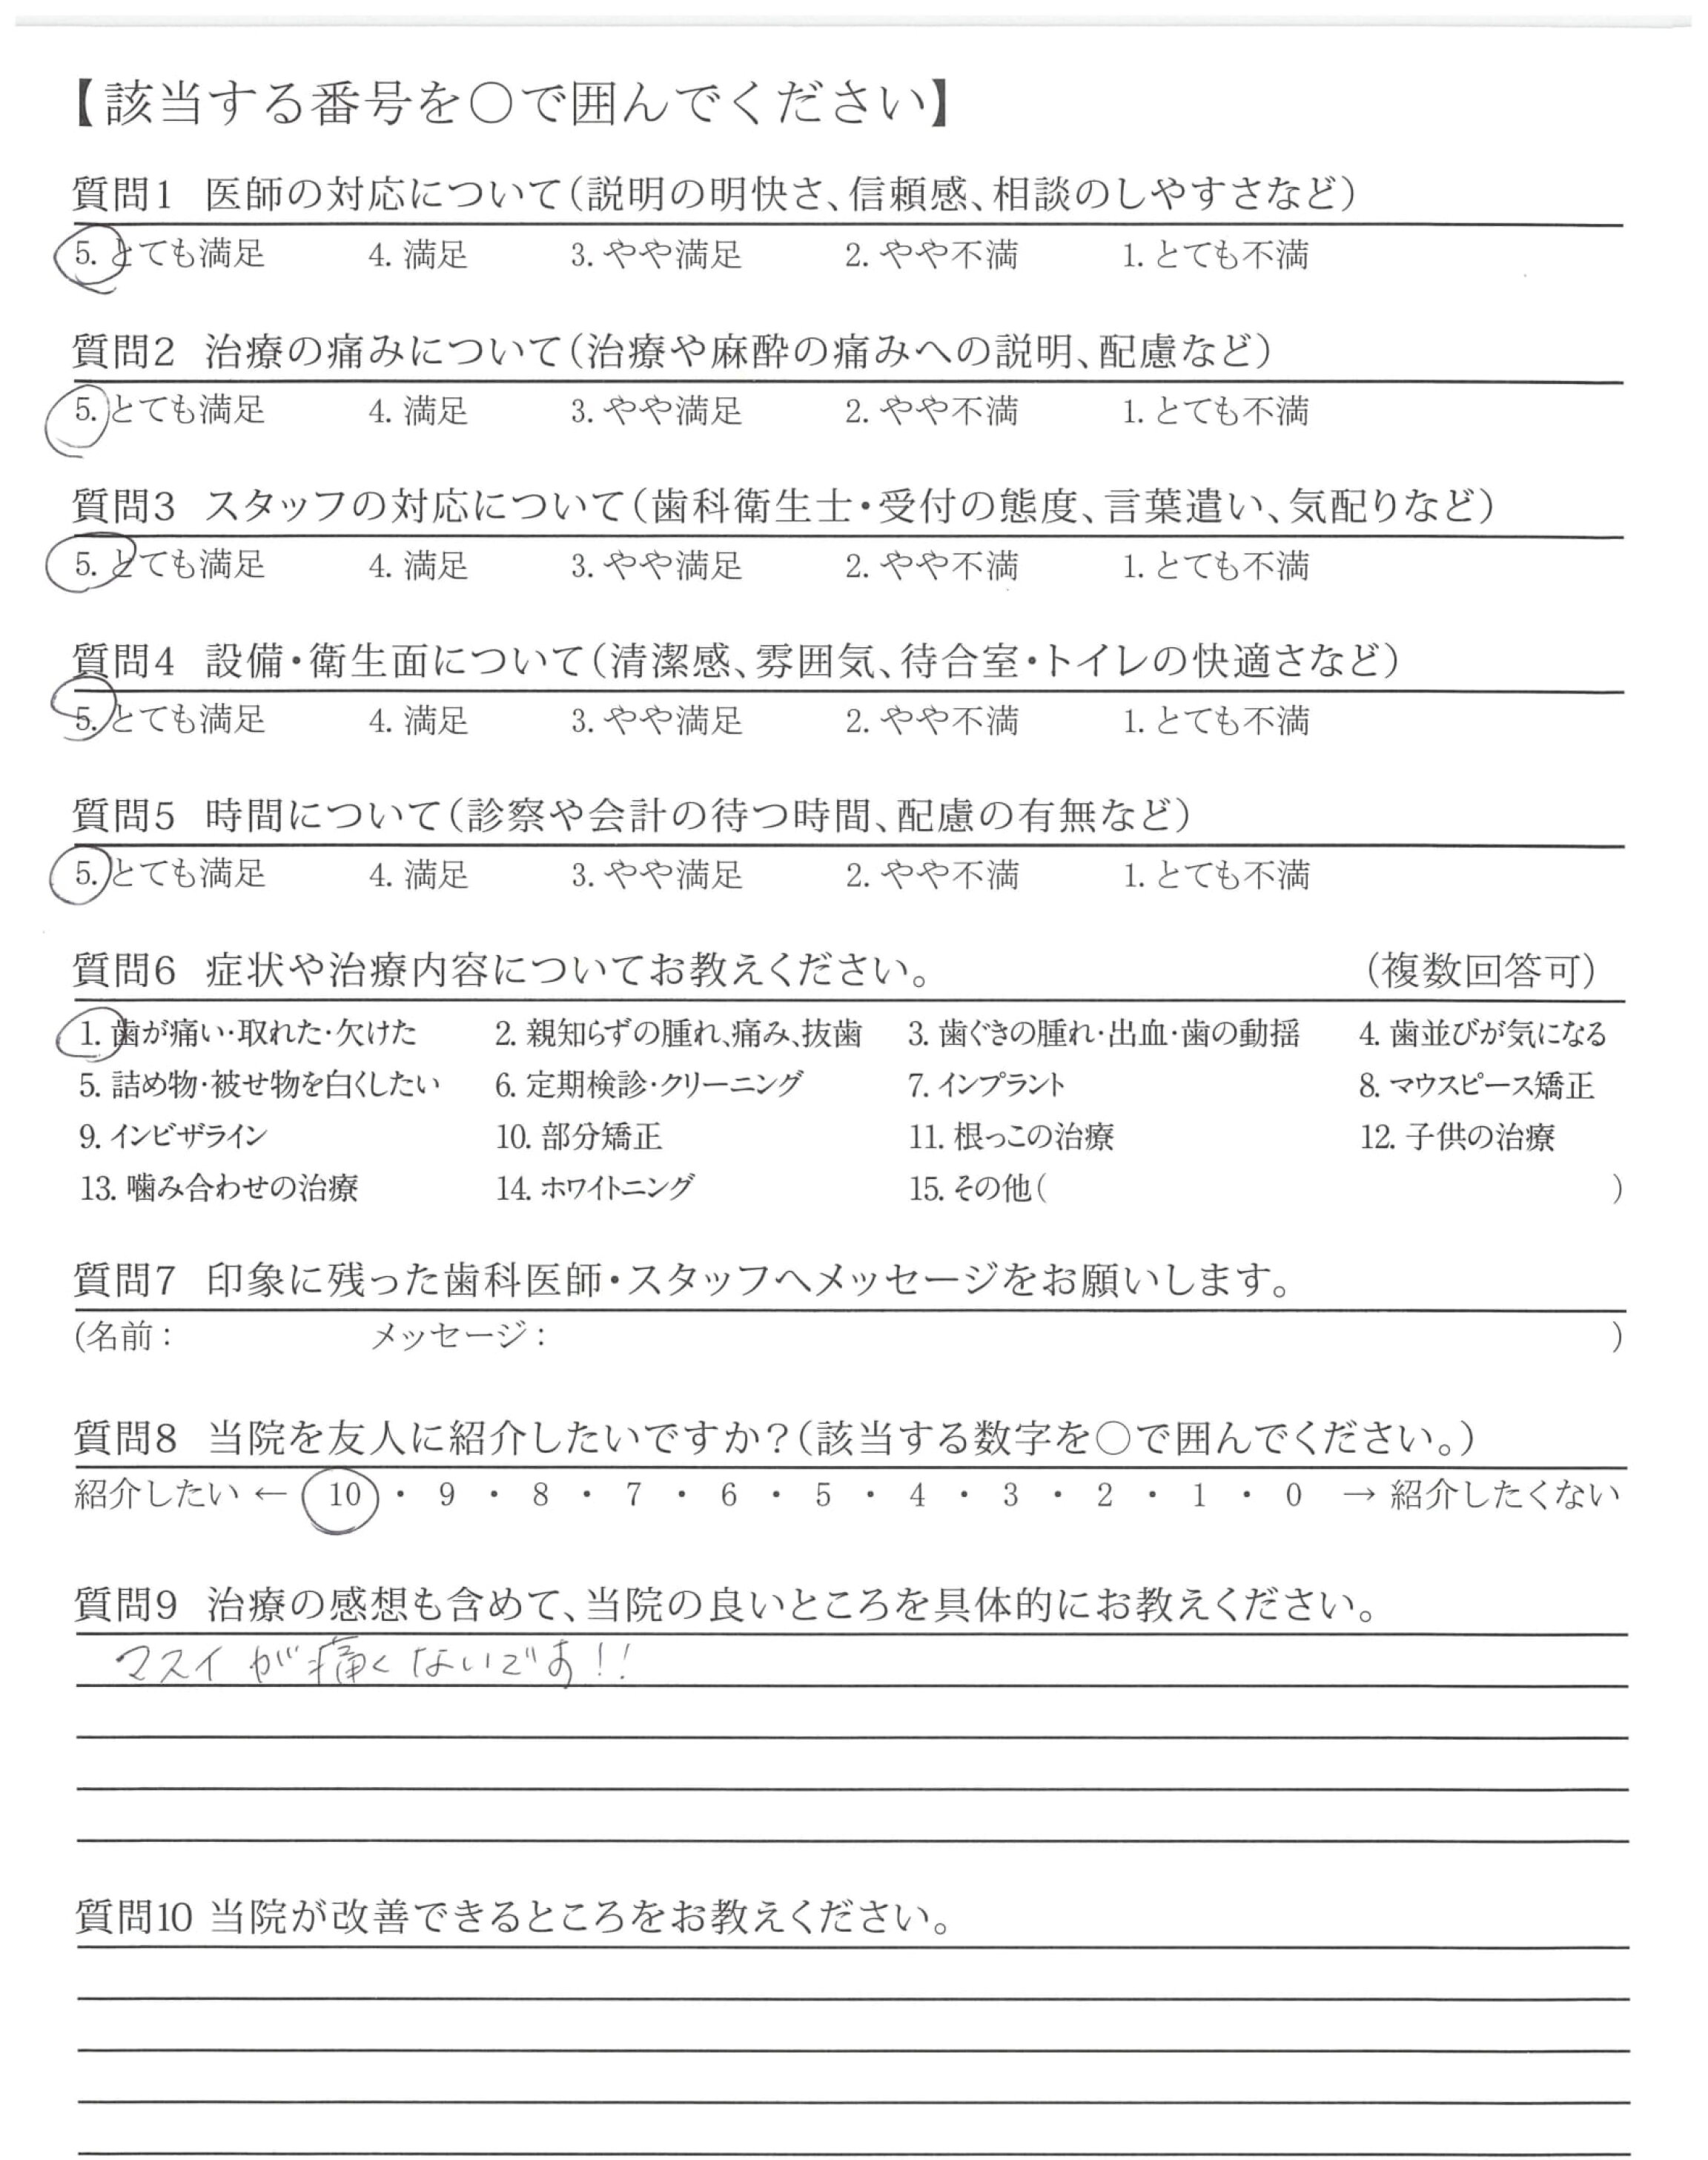 【該当する番号を○で囲んでください】
質問1 医師の対応について(説明の明快さ、信頼感、相談のしやすさなど)
5. とても満足 4. 満足 3. やや満足 2. やや不満 1. とても不満
質問2 治療の痛みについて(治療や麻酔の痛みへの説明、配慮など)
5. とても満足 4. 満足 3. やや満足 2. やや不満 1. とても不満
質問3 スタッフの対応について(歯科衛生士・受付の態度、言葉遣い、気配りなど)
5. とても満足 4. 満足 3. やや満足 2. やや不満 1. とても不満
質問4 設備・衛生面について(清潔感、雰囲気、待合室・トイレの快適さなど)
5. とても満足 4. 満足 3. やや満足 2. やや不満 1. とても不満
質問5 時間について(診察や会計の待つ時間、配慮の有無など)
5. とても満足 4. 満足 3. やや満足 2. やや不満 1. とても不満
質問6 症状や治療内容についてお教えください。 (複数回答可)
1. 歯が痛い・取れた・欠けた 2. 親知らずの腫れ、痛み、抜歯 3. 歯ぐきの腫れ・出血・歯の動揺 4. 歯並びが気になる
5. 詰め物・被せ物を白くしたい 6. 定期検診・クリーニング 7. インプラント 8. マウスピース矯正
9. インビザライン 10. 部分矯正 11. 根っこの治療 12. 子供の治療
13. 噛み合わせの治療 14. ホワイトニング 15. その他( )
質問7 印象に残った歯科医師・スタッフへメッセージをお願いします。
(名前: メッセージ: )
質問8 当院を友人に紹介したいですか?(該当する数字を○で囲んでください。)
紹介したい ← 10 ・ 9 ・ 8 ・ 7 ・ 6 ・ 5 ・ 4 ・ 3 ・ 2 ・ 1 ・ 0 → 紹介したくない
質問9 治療の感想も含めて、当院の良いところを具体的にお教えください。
マスイが痛くないです!!
質問10 当院が改善できるところをお教えください。